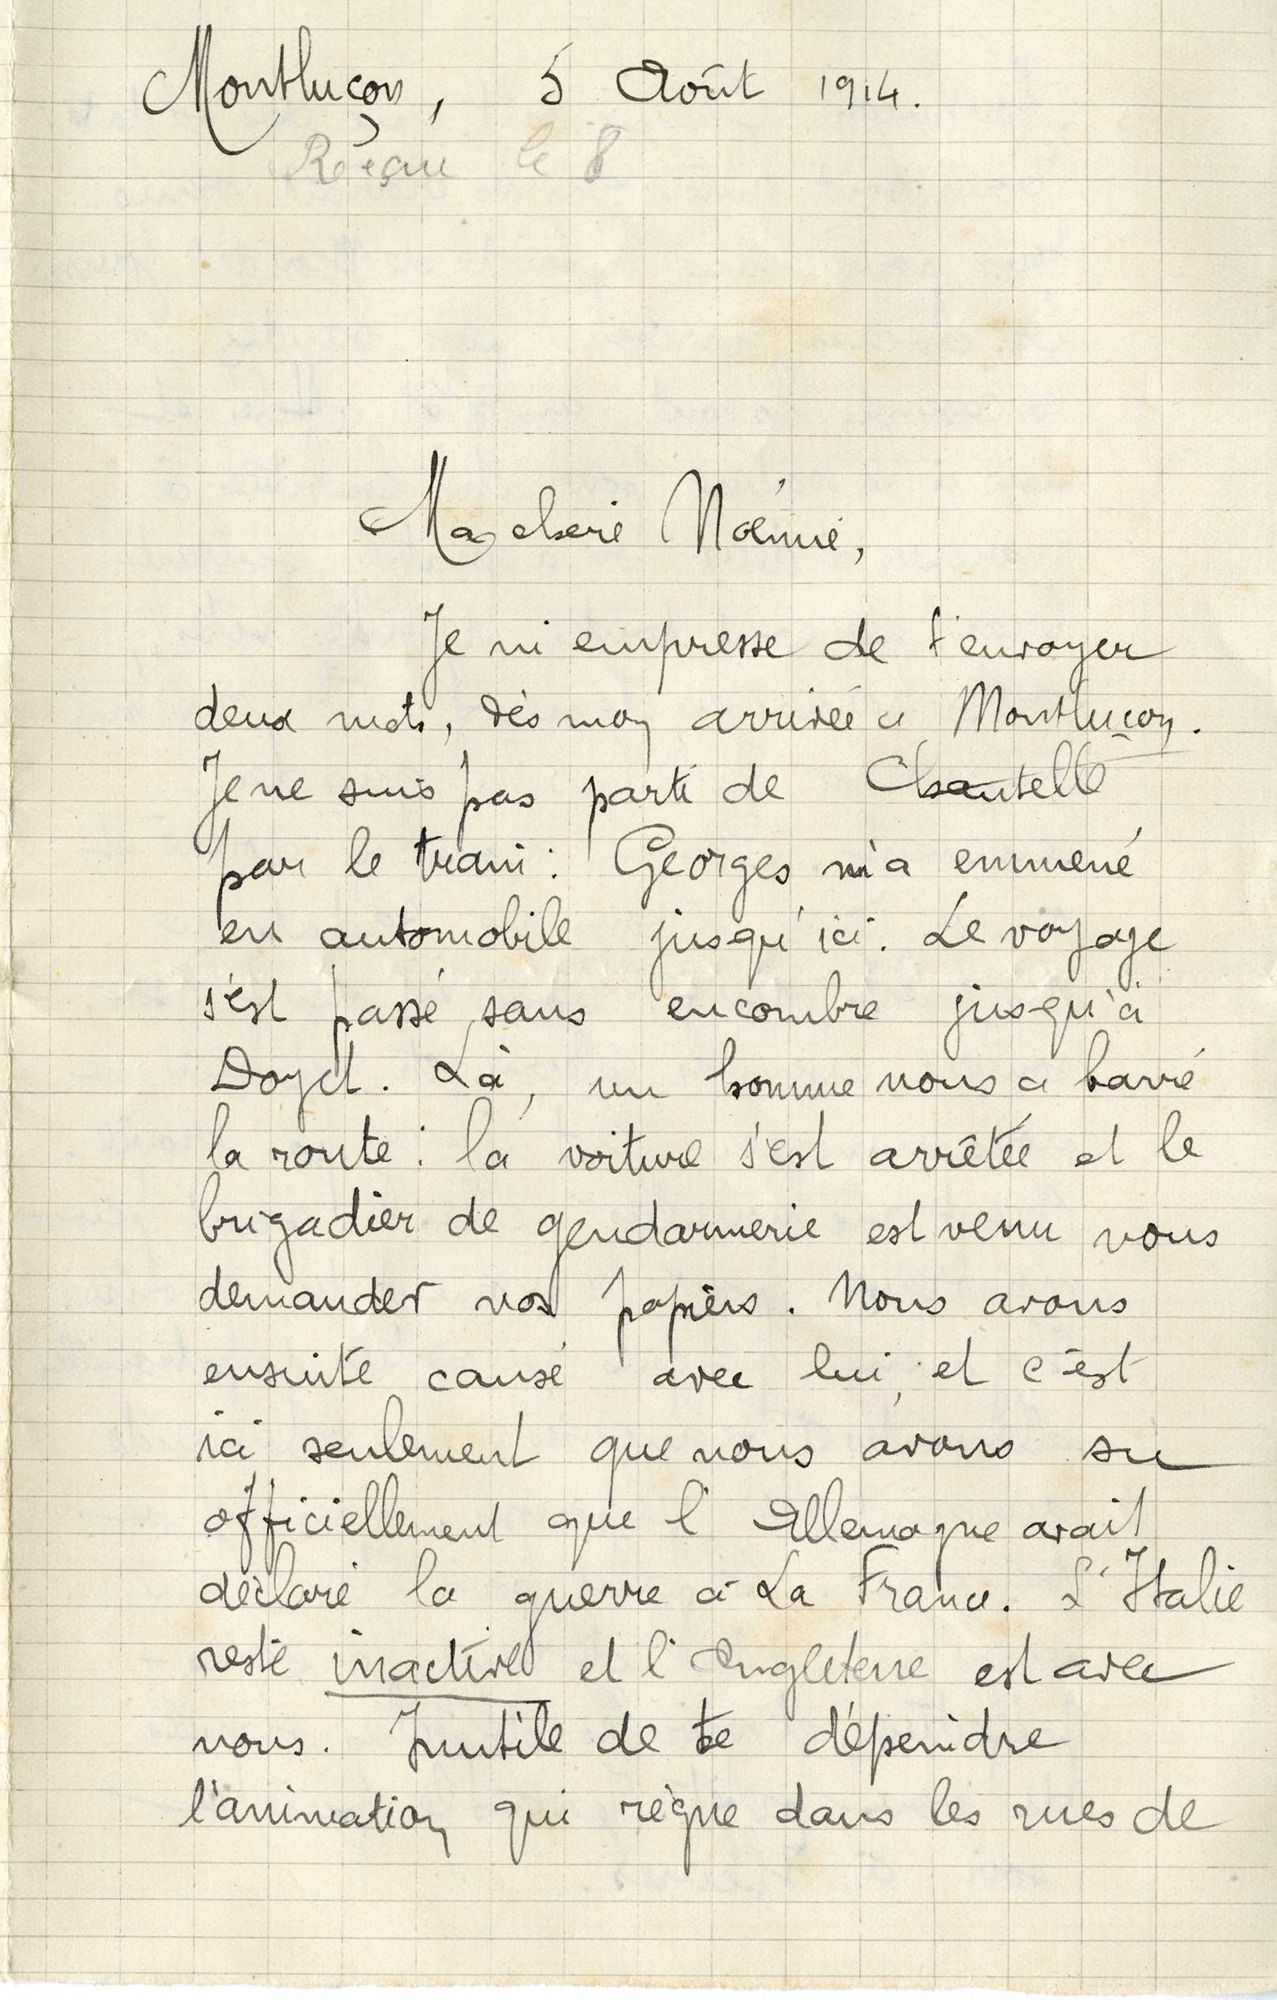 Montluçon, 5 Août 1914.
Reçue le 8
Ma cherie Noémie,
Je m'empresse de t'envoyer
deux mots, dès mon arrivée à Montluçon.
Je ne suis pas parti de Chantelle
par le train : Georges m'a emmené
en automobile jusqu'ici. Le voyage
s'est passé sans encombre jusqu'à
Doyet. Là, un homme nous a barré
la route : la voiture s'est arrêtée et le
brigadier de gendarmerie est venu nous
demander nos papiers. Nous avons
ensuite causé avec lui, et c'est
ici seulement que nous avons su
officiellement que l'Allemagne avait
déclaré la guerre à La France. L'Italie
reste inactive et l'Angleterre est avec
nous. Inutile de te dépeindre
l'animation qui règne dans les rues de